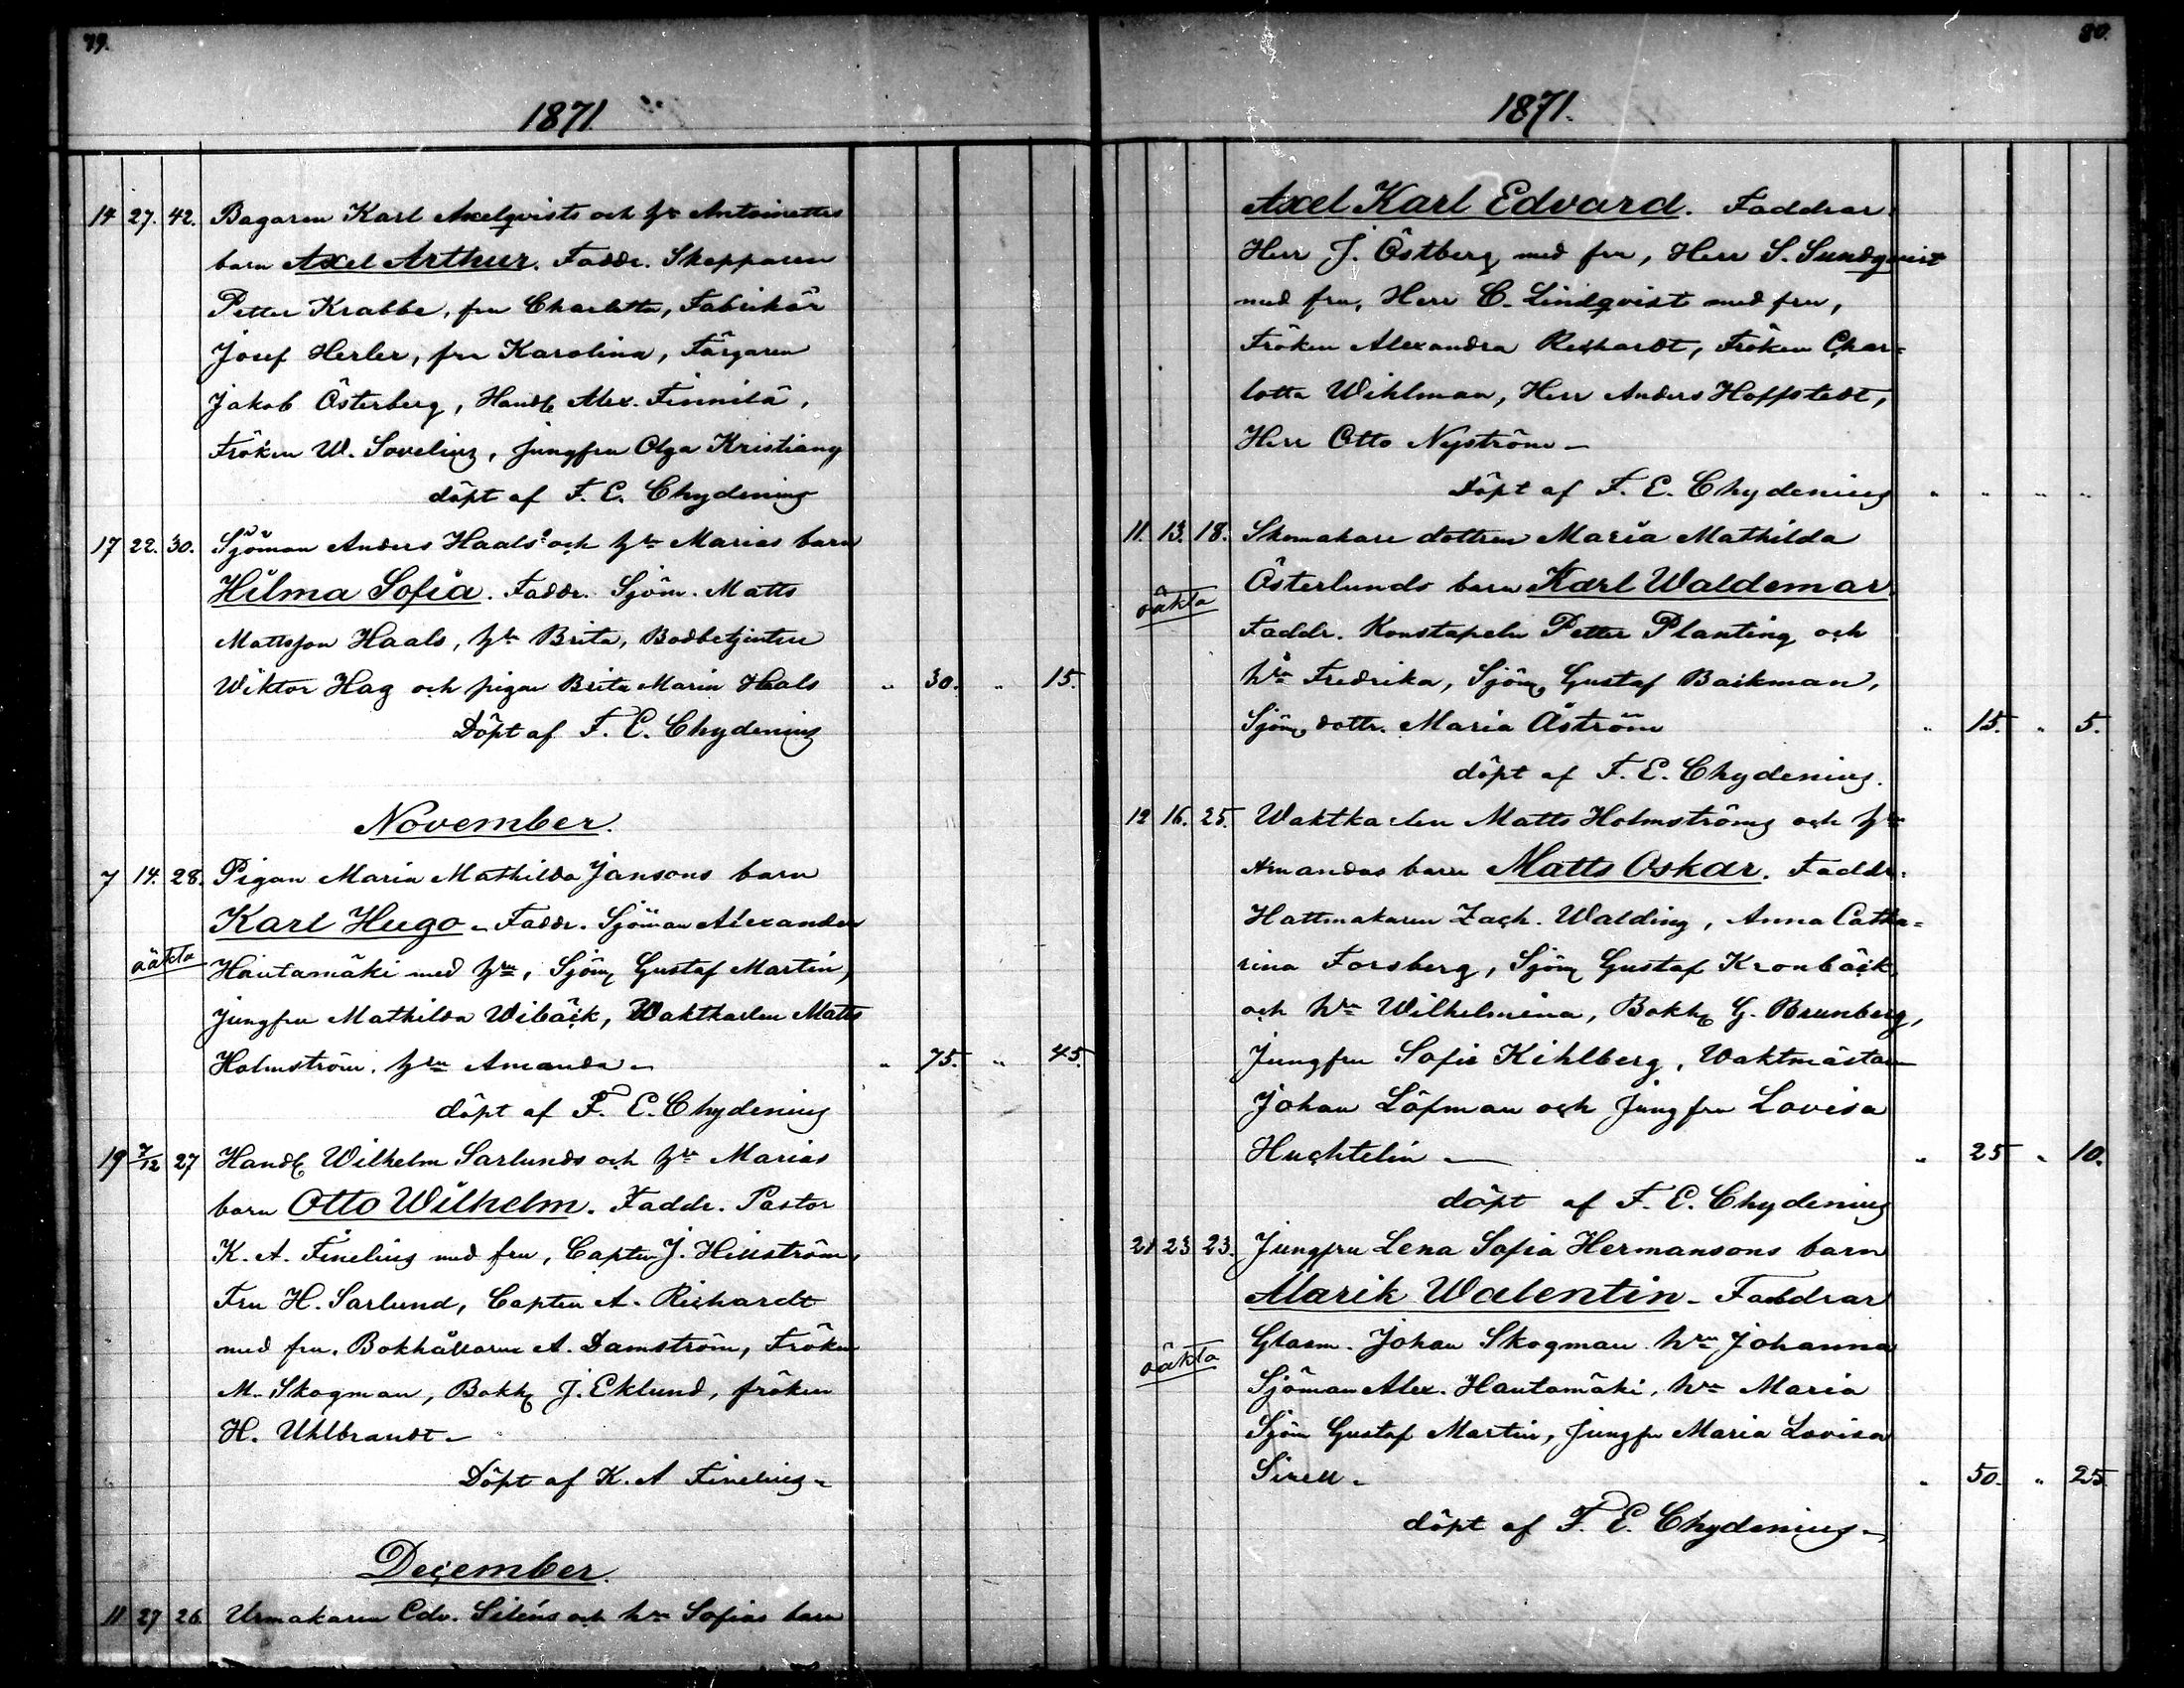 79.
1871.
14 27. 42. Bagaren Karl Axelqvists och h:s Antoinettes
barn Axel Arthur. Faddr. Skepparen
Petter Krabbe, fru Charlotta, Fabrikör
Josef Herler, fru Karolina, Färgaren
Jakob Österberg, Handl Alex. Finnilä,
Fröken W. Sovelius, jungfru Olga Kristians
döpt af F. E. Chydenius
17 22. 30. Sjöman Anders Haals och h:u Marias barn
Hilma Sofia. Faddr. Sjöm. Matts
Mattsson Haals, h:u Brita, Bodbetjenten
Wiktor Hag och pigan Brita Maria Haals „ 30. „ 15.
Döpt af F. E. Chydenius
November.
7 14. 28. Pigan Maria Mathilda Jansons barn
Karl Hugo. Faddr. Sjöman Alexander
oäkta Hautamäki med h:u, Sjöm Gustaf Martin,
jungfru Mathilda Wibäck, Waktkarlen Matts
Holmström, h:u Amanda „ 75. „ 45.
döpt af F. E. Chydenius
19 7/12 27 Handl Wilhelm Sarlunds och h:u Marias
barn Otto Wilhelm. Faddr. Pastor
K. A. Finelius med fru, Capten J. Hillström,
Fru H. Sarlund, Capten A. Richardt
med fru, Bokhållarne A. Damström, Fröken
M. Skogman, Bokh J. Eklund, fröken
H. Uhlbrandt
Döpt af K. A Finelius
December.
11 27 26 Urmakaren Edv. Siléns och h:u Sofias barn
80.
1871.
Axel Karl Edvard. Faddrar
Herr J. Östberg med fru, Herr S. Sundqvist
med fru, Herr C. Lindqvist med fru,
Fröken Alexandra Richardt, Fröken Char-
lotta Wihlman, Herr Anders Hoffstedt,
Herr Otto Nyström
Döpt af F. E. Chydenius „ „ „ „
11 13. 18. Skomakare dottren Maria Mathilda
oäkta Österlunds barn Karl Waldemar.
Faddr. Konstapeln Petter Planting och
h:u Fredrika, Sjöm Gustaf Backman,
Sjöm dottr. Maria Åström „ 15. „ 5.
döpt af F. E. Chydenius.
12 16. 25. Waktkarlen Matts Holmströms och h:u
Amandas barn Matts Oskar. Faddr.
Hattmakaren Zach. Walding, Anna Catha-
rina Forsberg, Sjöm Gustaf Kronbäck
och h:u Wilhelmina, Bokh G. Brunberg,
Jungfru Sofie Kihlberg, Waktmästar
Johan Löfman och Jungfru Lovisa
Huchtelin „ 25 „ 10.
döpt af F. E. Chydenius
21 23 23. Jungfru Lena Sofia Hermansons barn
Alarik Walentin. Faddrar
oäkta Glasm. Johan Skogman h:u Johanna
Sjöman Alex. Hautamäki, h:u Maria
Sjöm Gustaf Martin, jungfr Maria Lovisa
Sirell „ 50. „ 25
döpt af F. E. Chydenius